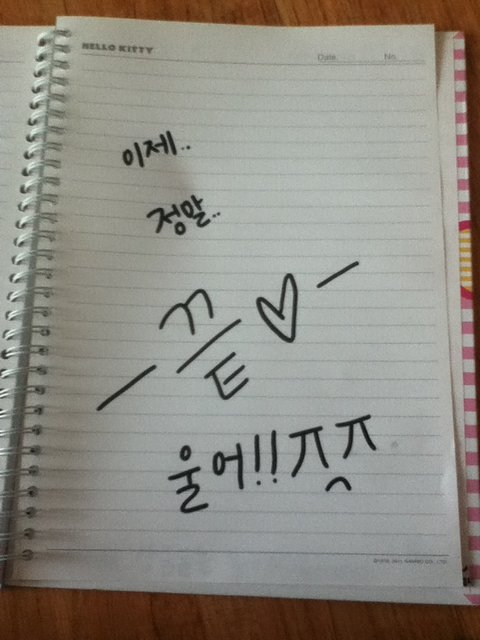 HELLO KITTY
Date. No.
이제..
정말..
- 끝♡ -
울어!! ㅠ^ㅠ